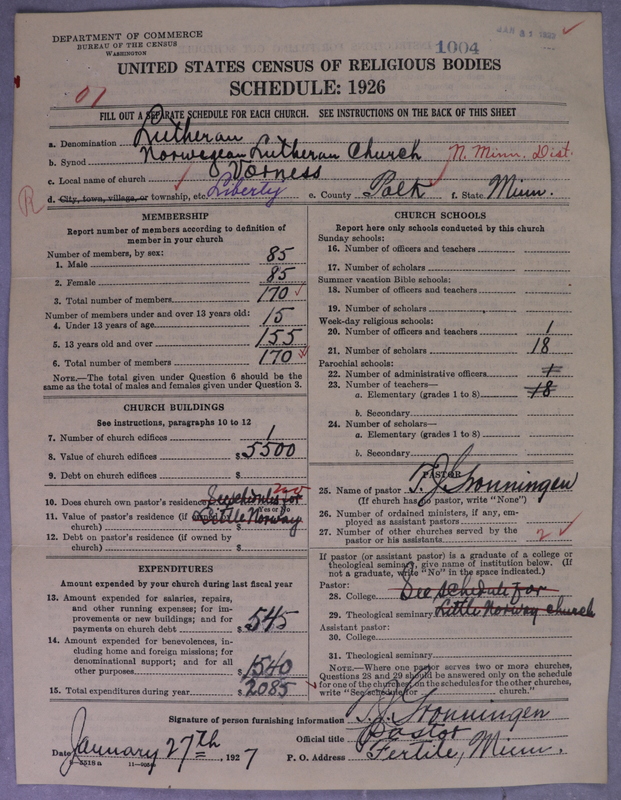 DEPARTMENT OF COMMERCE
BUREAU OF THE CENSUS
WASHINGTON
1004
UNITED STATES CENSUS OF RELIGIOUS BODIES
SCHEDULE: 1926
FILL OUT A SEPARATE SCHEDULE FOR EACH CHURCH. SEE INSTRUCTIONS ON THE BACK OF THIS SHEET
a. Denomination Lutheran
b. Synod Norwegean Lutheran Church N. Minn. Dist.
c. Local name of church Varness
d. City, town, village, or township, etc. Liberty e. County Polk f. State Minn.
R
MEMBERSHIP
Report number of members according to definition of
member in your church
Number of members, by sex:
1. Male 85
2. Female 85
3. Total number of members 170
Number of members under and over 13 years old:
4. Under 13 years of age 15
5. 13 years old and over 155
6. Total number of members 170
NOTE.—The total given under Question 6 should be
same as the total of males and females given under Question 3.
CHURCH BUILDINGS
See instructions, paragraphs 10 to 12
7. Number of church edifices 1
8. Value of church edifices $ 5500
9. Debt on church edifices $
10. Does church own pastor's residence See schedules for no
Yes or No
11. Value of pastor's residence (if owned by Little Norway
church) $
12. Debt on pastor's residence (if owned by
church) $
EXPENDITURES
Amount expended by your church during last fiscal year
13. Amount expended for salaries, repairs,
and other running expenses; for im-
provements or new buildings; and for
payments on church debt $ 545
14. Amount expended for benevolences, in-
cluding home and foreign missions; for
denominational support; and for all
other purposes $ 1540
15. Total expenditures during year $ 2085
CHURCH SCHOOLS
Report here only schools conducted by this church
Sunday schools:
16. Number of officers and teachers
17. Number of scholars
Summer vacation Bible schools:
18. Number of officers and teachers
19. Number of scholars
Week-day religious schools:
20. Number of officers and teachers 1
21. Number of scholars 18
Parochial schools:
22. Number of administrative officers 1
23. Number of teachers—
a. Elementary (grades 1 to 8) 18
b. Secondary
24. Number of scholars—
a. Elementary (grades 1 to 8)
b. Secondary
PASTOR
25. Name of pastor T. J. Gronningen
(If church has no pastor, write "None")
26. Number of ordained ministers, if any, em-
ployed as assistant pastors
27. Number of other churches served by the
pastor or his assistants 2
If pastor (or assistant pastor) is a graduate of a college or
theological seminary, give name of institution below. (If
not a graduate, write "No" in the space indicated.)
Pastor:
28. College See schedule for
29. Theological seminary Little Norway church
Assistant pastor:
30. College
31. Theological seminary
NOTE.—Where one pastor serves two or more churches,
Questions 28 and 29 should be answered only on the schedule
for one of the churches; on the schedules for the other churches,
write "See schedule for church."
Signature of person furnishing information T. J. Gronningen
Official title Pastor
Date January 27th, 1927 P. O. Address Fertile, Minn.